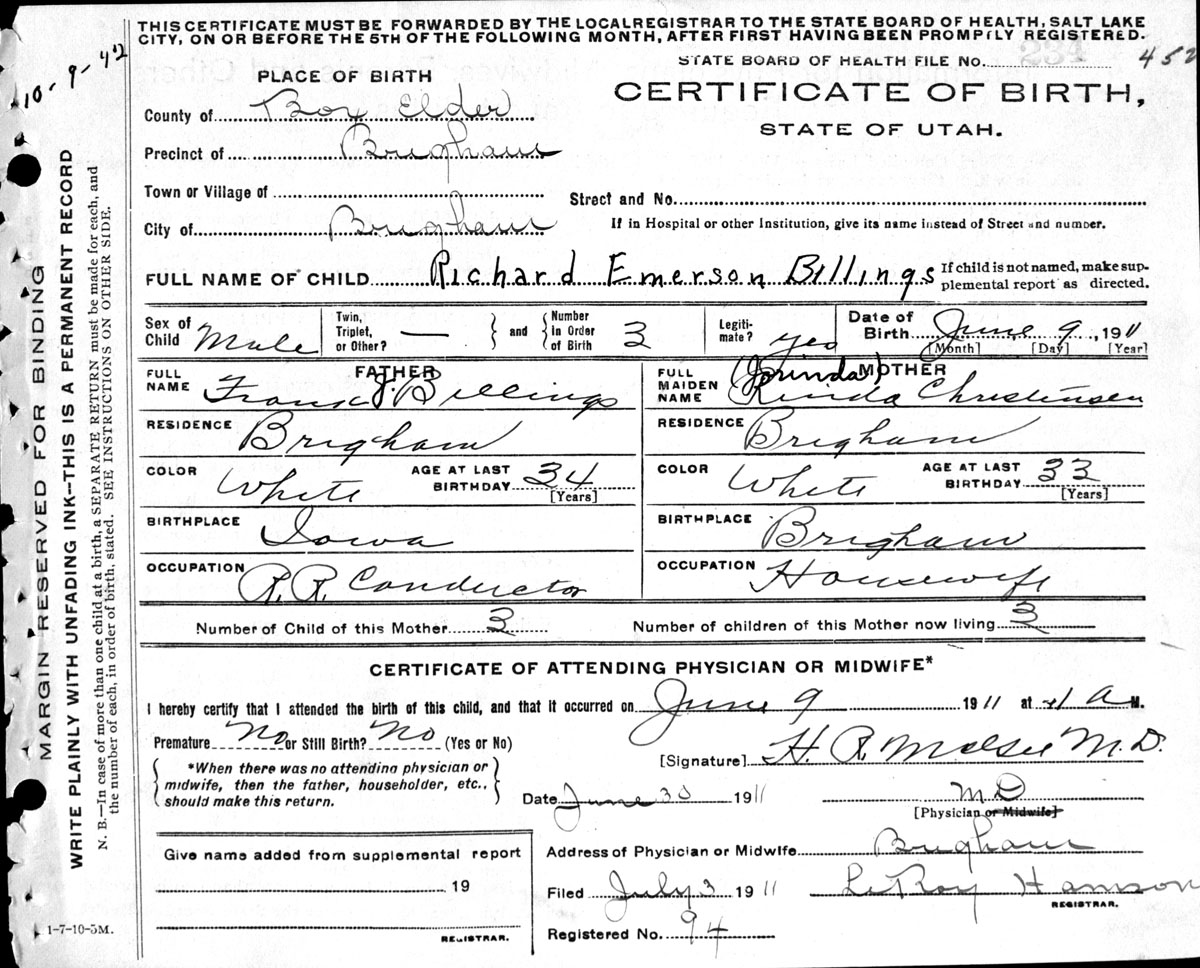 THIS CERTIFICATE MUST BE FORWARDED BY THE LOCAL REGISTRAR TO THE STATE BOARD OF HEALTH, SALT LAKE
CITY, ON OR BEFORE THE 5TH OF THE FOLLOWING MONTH, AFTER FIRST HAVING BEEN PROMPTLY REGISTERED.
10-9-42
STATE BOARD OF HEALTH FILE No. 452
PLACE OF BIRTH
CERTIFICATE OF BIRTH,
STATE OF UTAH.
County of Box Elder
Precinct of Brigham
Town or Village of
Street and No.
City of Brigham
If in Hospital or other Institution, give its name instead of Street and number.
FULL NAME OF CHILD Richard Emerson Billings
If child is not named, make sup-
plemental report as directed.
Sex of Child Male
Twin, Triplet, or Other? —
and
Number in Order of Birth 3
Legiti-mate? yes
Date of Birth June 9, 1911
[Month] [Day] [Year]
FATHER
FULL NAME Frank J. Billings
RESIDENCE Brigham
COLOR White
AGE AT LAST BIRTHDAY 34
[Years]
BIRTHPLACE Iowa
OCCUPATION R. R. Conductor
MOTHER
FULL MAIDEN NAME Rinda Christensen
RESIDENCE Brigham
COLOR White
AGE AT LAST BIRTHDAY 33
[Years]
BIRTHPLACE Brigham
OCCUPATION Housewife
Number of Child of this Mother 3
Number of children of this Mother now living 3
CERTIFICATE OF ATTENDING PHYSICIAN OR MIDWIFE*
I hereby certify that I attended the birth of this child, and that it occurred on June 9 1911 at 1 A M.
Premature No or Still Birth? No (Yes or No)
*When there was no attending physician or
midwife, then the father, householder, etc.,
should make this return.
[Signature] H. R. M.D.
Date June 30 1911
M D
[Physician or Midwife]
Give name added from supplemental report
19
REGISTRAR.
Address of Physician or Midwife Brigham
Filed July 3 1911
LeRoy Hamson
REGISTRAR.
Registered No. 94
1-7-10-5M.
MARGIN RESERVED FOR BINDING
WRITE PLAINLY WITH UNFADING INK--THIS IS A PERMANENT RECORD
N. B.—In case of more than one child at a birth, a SEPARATE RETURN must be made for each, and
the number of each, in order of birth, stated. SEE INSTRUCTIONS ON OTHER SIDE.